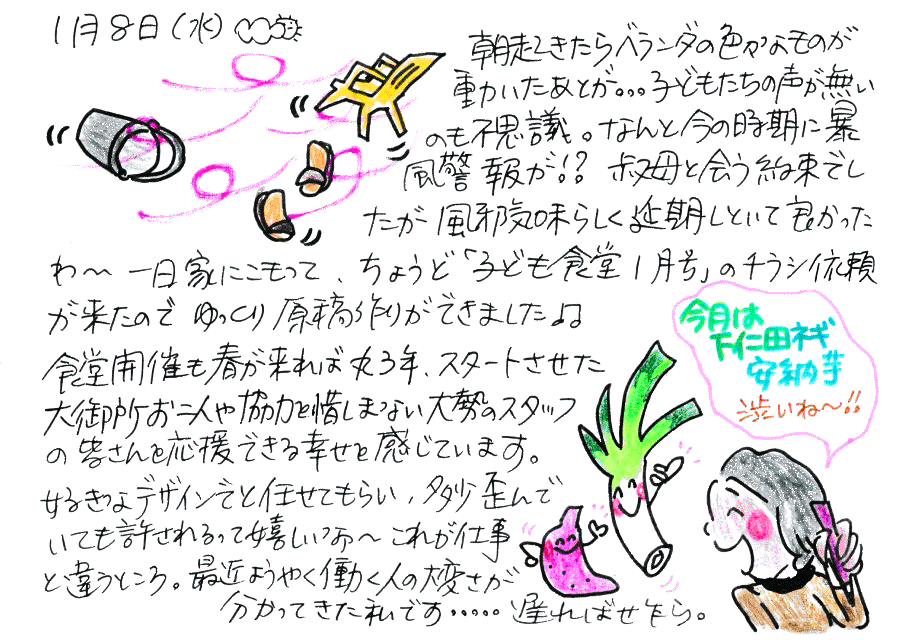 1月8日(水)
朝起きたらベランダの色々なものが
動いたあとが。。。子どもたちの声が無い
のも不思議。なんと今の時期に暴
風警報が!? 叔母と会う約束でし
たが風邪気味らしく延期しといて良かった
わ〜 一日家にこもって、ちょうど「子ども食堂1月号」のチラシ依頼
が来たので ゆっくり原稿作りができました♫
今月は
下仁田ネギ
安納芋
渋いね〜!!
食堂開催も春が来れば丸3年、スタートさせた
大御所お二人や協力を惜しまない大勢のスタッフ
の皆さんを応援できる幸せを感じています。
好きなデザインでと任せてもらい、多少歪んで
いても許されるって嬉しいな〜 これが仕事
と違うところ。最近ようやく働く人の大変さが
分かってきた私です・・・・・遅ればせながら。